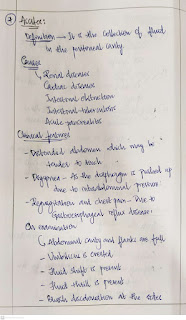 ② Ascites:
Definition — It is the collection of fluid
in the peritoneal cavity
Causes
Renal diseases
Cardiac diseases
Intestinal obstruction
Intestinal tuberculosis
Acute pancreatitis
Clinical features
- Distended abdomen which may be
tender to touch
- Dyspnea - As the diaphragm is pushed up
due to intraabdominal pressure
- Regurgitation and chest pain - Due to
gastroesophageal reflux disease
On examination
Abdominal cavity and flanks are full
- Umbilicus is everted
- Fluid shift is present
- Fluid thrill is present
- Bluish discolouration at the sides